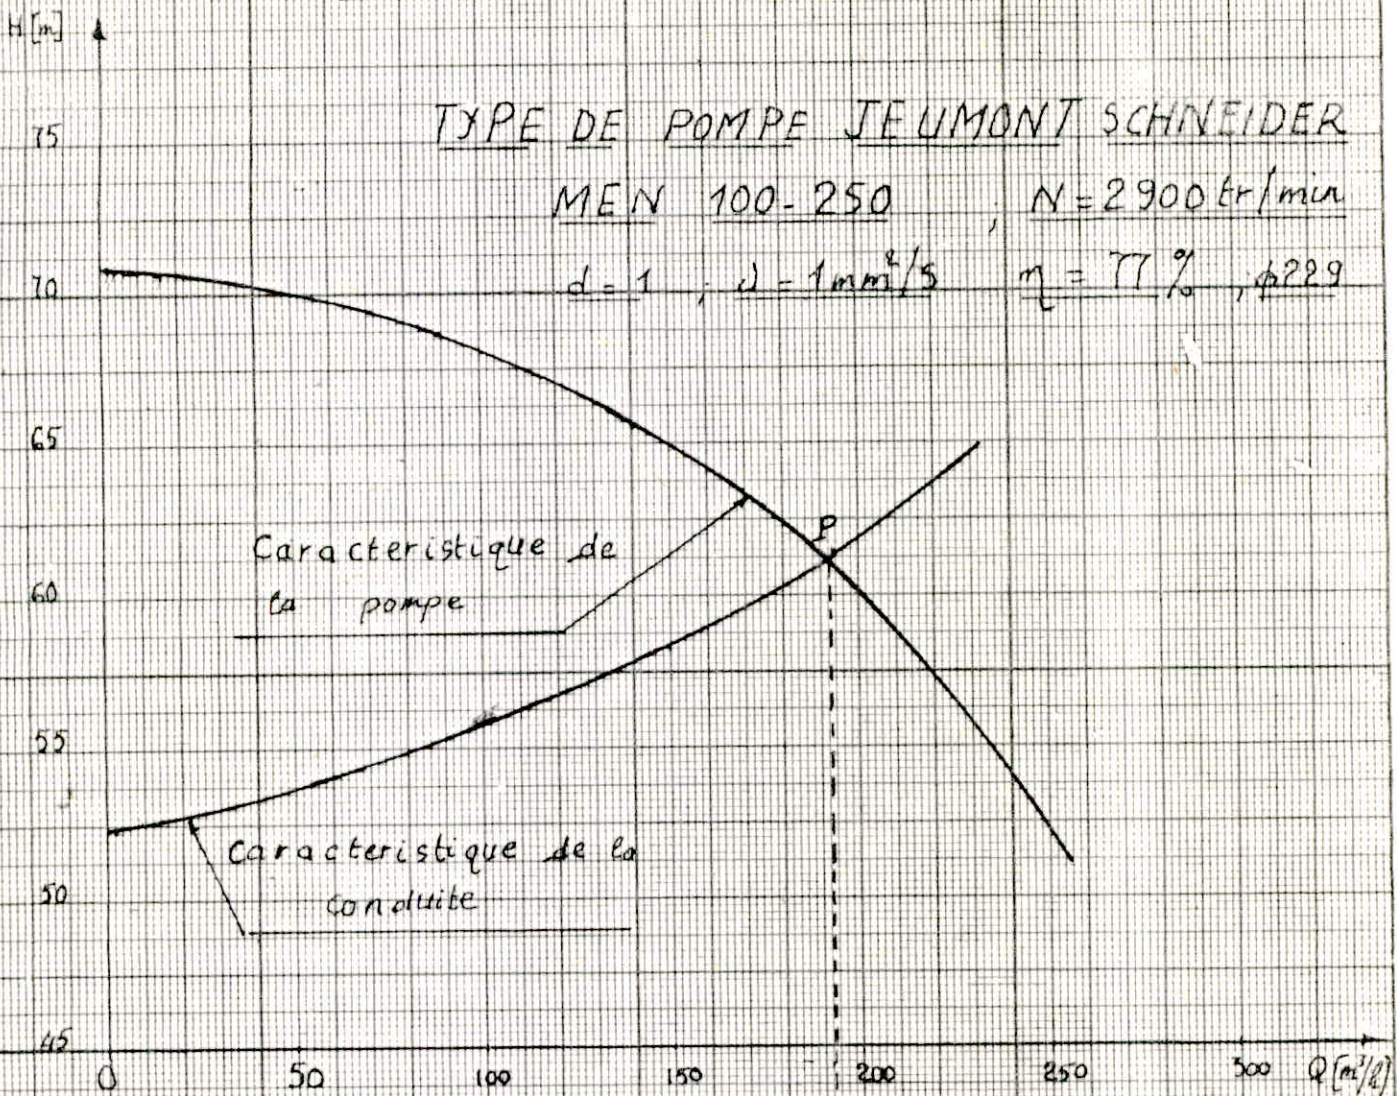 H [m]
TYPE DE POMPE JEUMONT SCHNEIDER
75
MEN 100-250 , N = 2900 tr/min
70
d = 1 ; ν = 1 mm²/s η = 77 % , ϕ229
65
P
Caracteristique de
la pompe
60
55
Caracteristique de la
conduite
50
45
0 50 100 150 200 250 300 Q [m³/h]